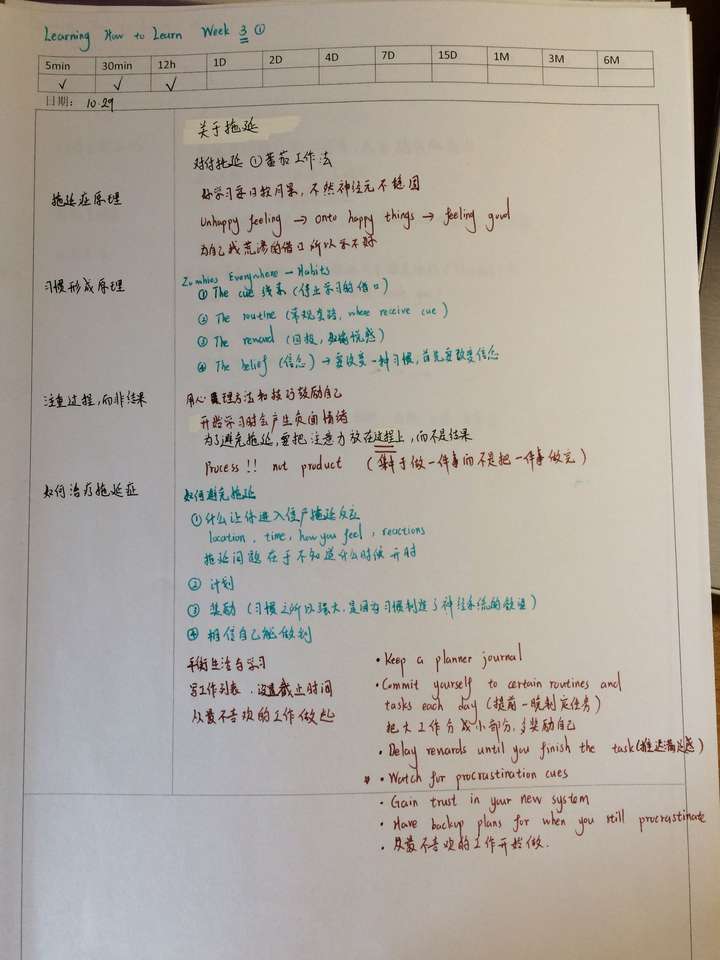 Learning How to Learn Week 3 ①
5min 30min 12h 1D 2D 4D 7D 15D 1M 3M 6M
✓ ✓ ✓
日期: 10.29
关于拖延
对付拖延 ① 番茄工作法
拖延症原理
好学习每日较月累, 不然神经元不稳固
Unhappy feeling → onto happy things → feeling good
为自己找荒谬的借口所以学不好
习惯形成原理
Zombies Everywhere — Habits
① The cue 线索 (停止学习的借口)
② The routine (常规套路, where receive cue)
③ The reward (回报, 愉悦感)
④ The belief (信念) → 要改变一种习惯, 首先要改变信念
注重过程, 而非结果
用心理方法和技巧鼓励自己
开始学习时会产生负面情绪
为了避免拖延, 要把注意力放在过程上, 而不是结果
Process!! not product (集中于做一件事而不是把一件事做完)
如何治疗拖延症
如何避免拖延
① 什么让你进入住产拖延反应
location, time, how you feel, reactions
拖延问题在于不知道什么时候开时
② 计划
③ 奖励 (习惯之所以强大, 是因为习惯制造了神经系统的)
④ 相信自己能做到
平衡生活与学习
写工作列表, 设置截止时间
从最不喜欢的工作做起
• Keep a planner journal
• Commit yourself to certain routines and
tasks each day (提前一晚制定任务)
把大工作分成小部分, 多奖励自己
• Delay rewards until you finish the task (推迟满足感)
• Watch for procrastination cues
• Gain trust in your new system
• Have backup plans for when you still procrastinate
• 从最不喜欢的工作开始做.